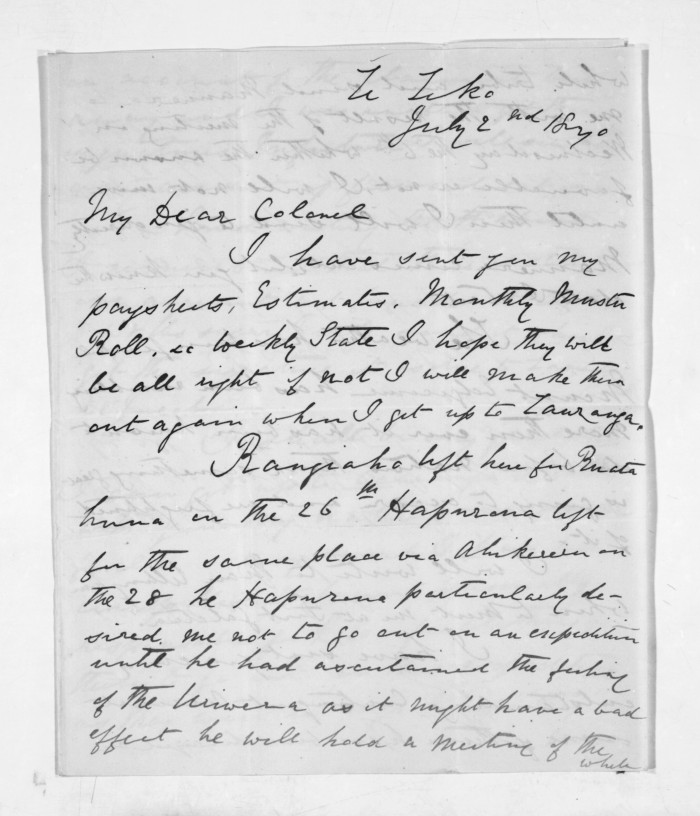 Te Teko
July 2nd 1870
My Dear Colonel
I have sent you my
paysheets, Estimates, Monthly Muster
Roll, &c Weekly State I hope they will
be all right if not I will make them
out again when I get up to Tauranga.
Rangiaho left here for Ruata
huna on the 26th Hapurona left
for the same place via Ahikereru on
the 28 he Hapurona particularly de-
sired me not to go out on an expedition
until he had ascertained the feeling
of the Uriwera as it might have a bad
effect he will hold a meeting of the
whole